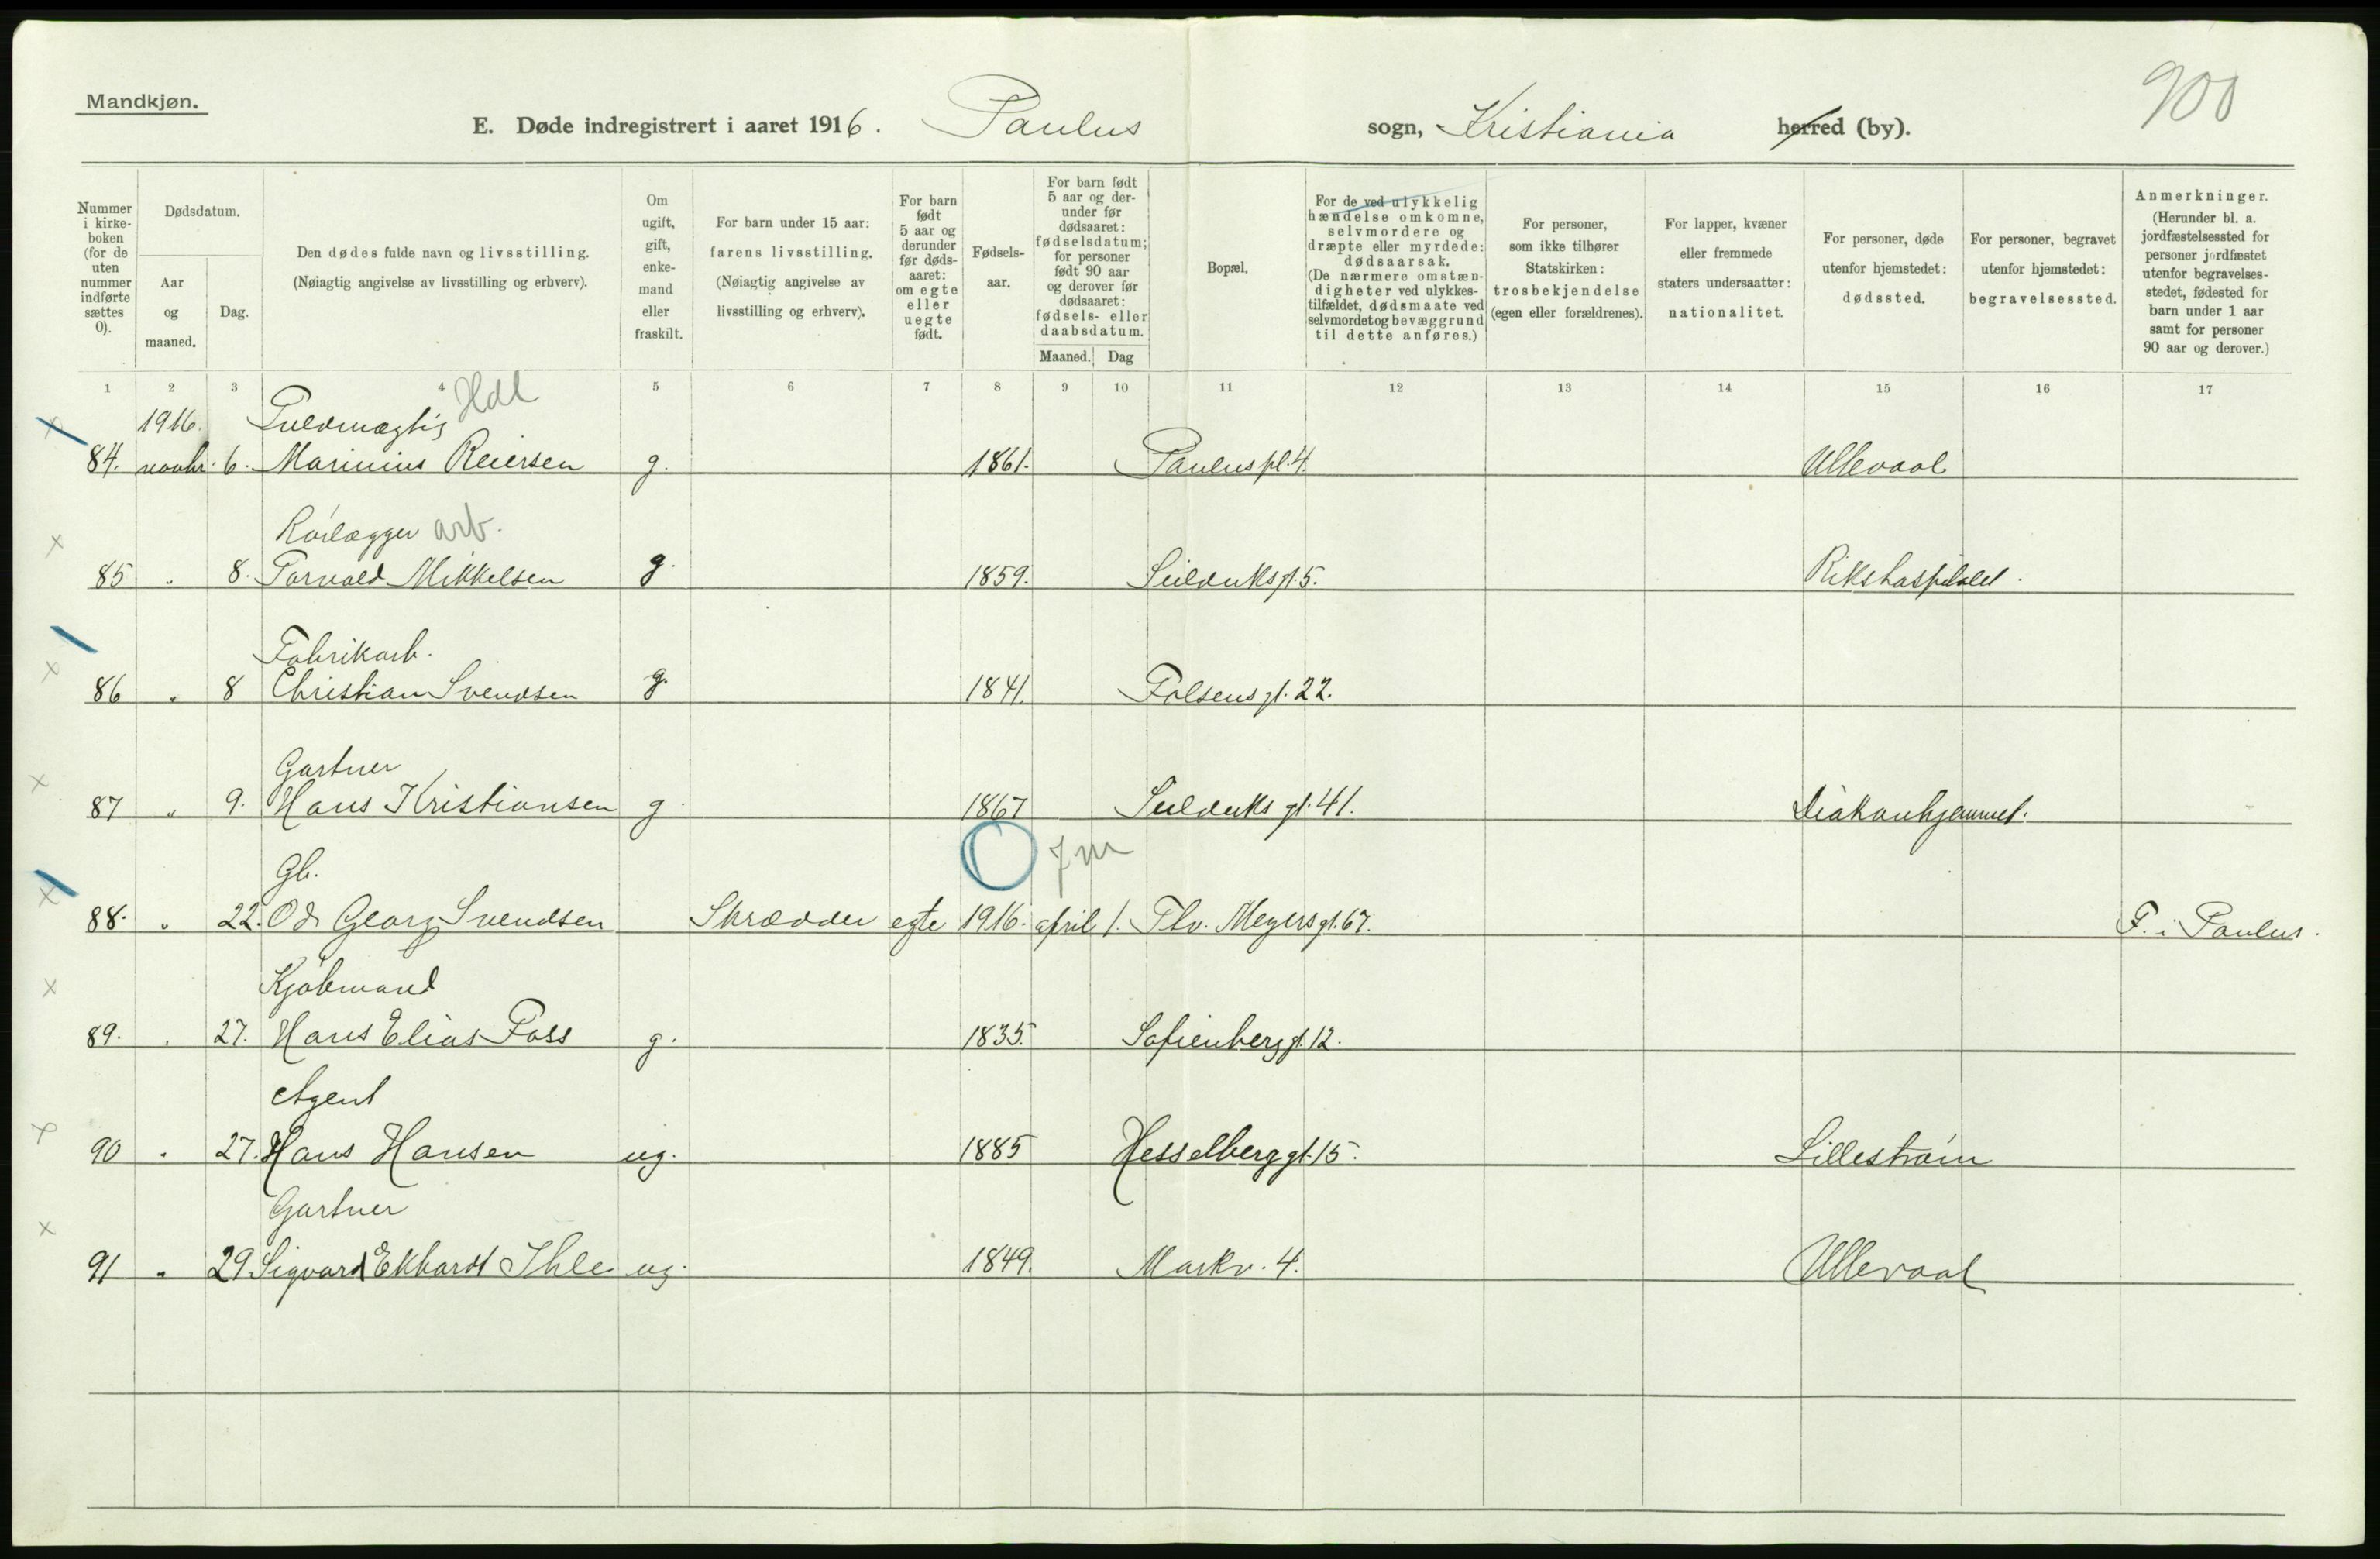 Mandkjøn.
900
E. Døde indregistrert i aaret 1916. Paulus sogn, Kristiania herred (by).
Nummer i kirke-boken (for de uten nummer indførte sættes 0).
Dødsdatum.
Aar og maaned.
Dag.
Den dødes fulde navn og livsstilling.
(Nøiagtig angivelse av livsstilling og erhverv).
Om ugift, gift, enke-mand eller fraskilt.
For barn under 15 aar: farens livsstilling. (Nøiagtig angivelse av livsstilling og erhverv).
For barn født 5 aar og derunder før døds-aaret: om egte eller uegte født.
Fødsels-aar.
For barn født 5 aar og der-under før dødsaaret: fødselsdatum; for personer født 90 aar og derover før dødsaaret: fødsels- eller daabsdatum.
Maaned. Dag
Bopæl.
For de ved ulykkelig hændelse omkomne, selvmordere og dræpte eller myrdede: dødsaarsak. (De nærmere omstæn-digheter ved ulykkes-tilfældet, dødsmaate ved selvmordet og bevæggrund til dette anføres.)
For personer, som ikke tilhører Statskirken: trosbekjendelse (egen eller forældrenes).
For lapper, kvæner eller fremmede staters undersaatter: nationalitet.
For personer, døde utenfor hjemstedet: dødssted.
For personer, begravet utenfor hjemstedet: begravelsessted.
Anmerkninger. (Herunder bl. a. jordfæstelsessted for personer jordfæstet utenfor begravelses-stedet, fødested for barn under 1 aar samt for personer 90 aar og derover.)
1 2 3 4 5 6 7 8 9 10 11 12 13 14 15 16 17
1916. Fuldmægtig Hdl
84. novbr. 6. Marinius Reiersen g. 1861. Paulus pl. 4. Ullevaal
Rørlægger arb.
85 " 8. Torvald Mikkelsen g. 1859. Seilduksgt. 5. Rikshospitalet.
Fabrikarb.
86 " 8 Christian Svendsen g. 1841. Folsensgt. 22.
Gartner
87 " 9. Hans Kristiansen g. 1867 Seilduksgt. 41. Diakonhjemmet.
Gb. 7 m
88. " 22. Od Georg Svendsen Skrædder egte 1916. april 1. Thv. Meyersgt. 67. F. i Paulus.
Kjøbmand
89. " 27. Hans Elias Foss g. 1835. Sofienberggt. 12.
Agent
90 " 27. Hans Hansen ug. 1885 Hesselberggt. 15. Lillestrøm
Gartner
91 " 29 Sigvard Ekhardt Ihle ug. 1849. Markv. 4. Ullevaal